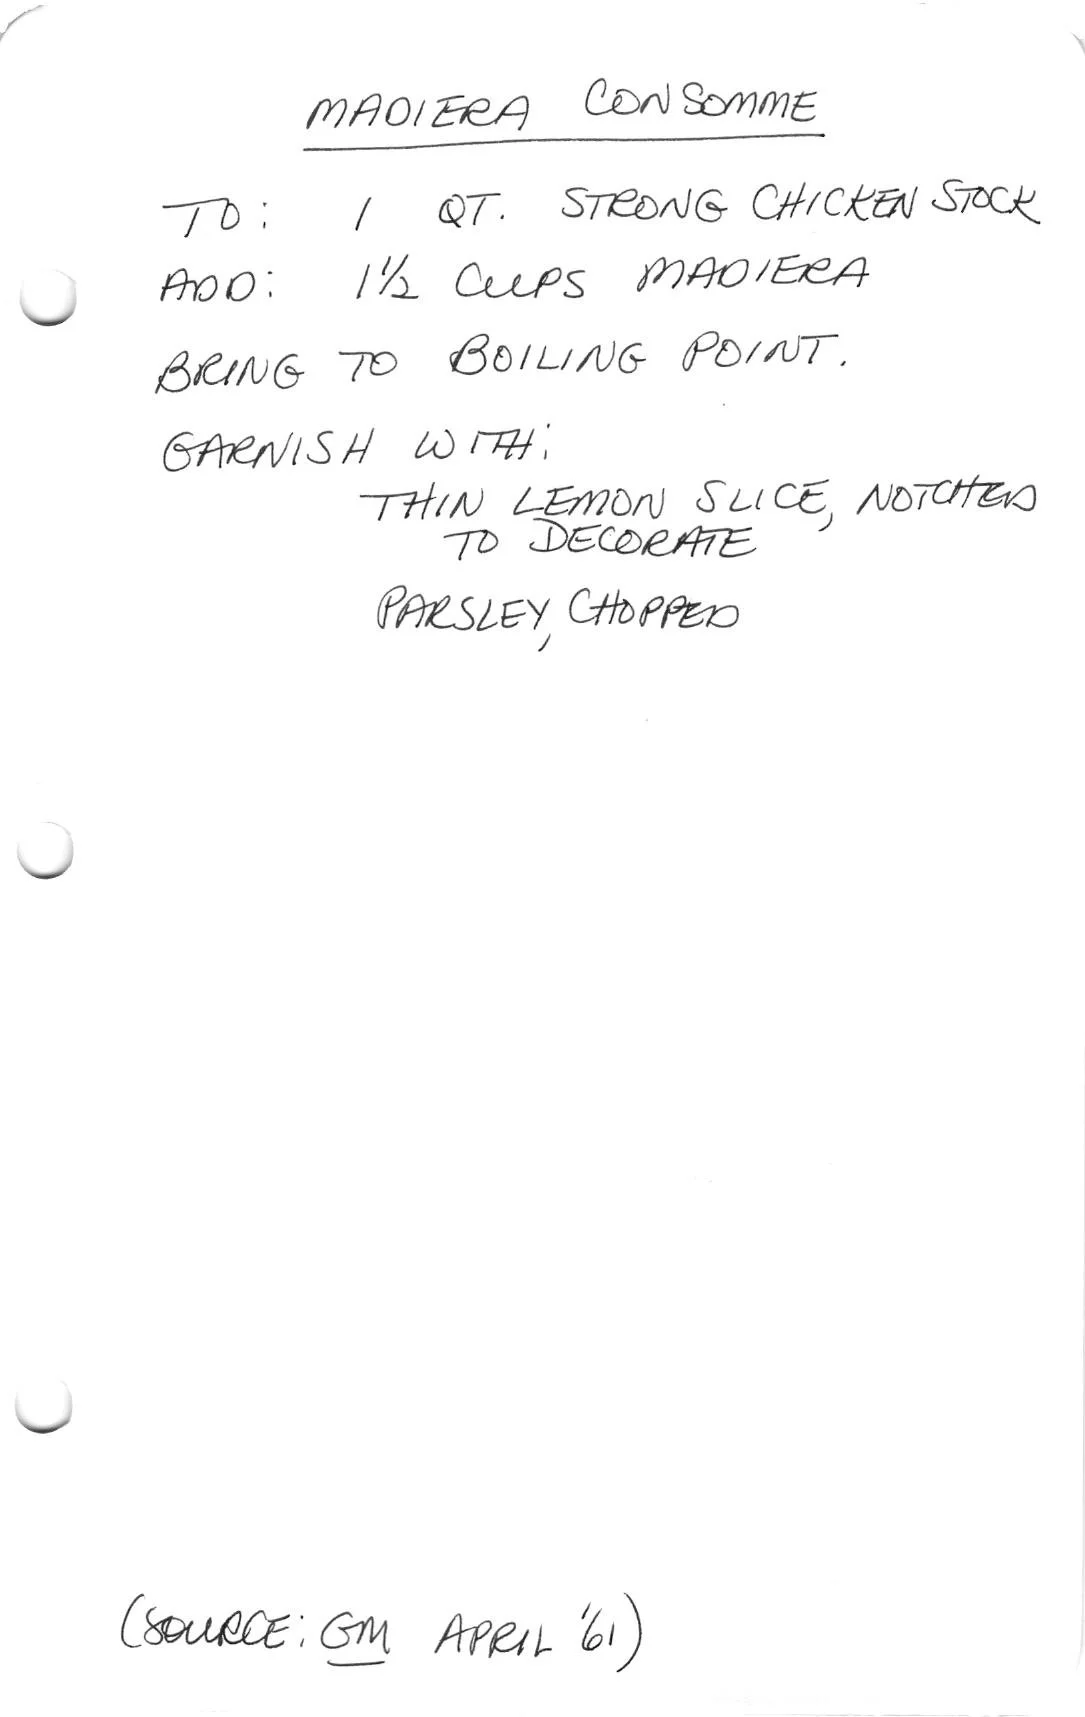 MADIERA CONSOMME
TO: 1 QT. STRONG CHICKEN STOCK
ADD: 1½ CUPS MADIERA
BRING TO BOILING POINT.
GARNISH WITH:
THIN LEMON SLICE, NOTCHED
TO DECORATE
PARSLEY, CHOPPED
(SOURCE: GM APRIL '61)